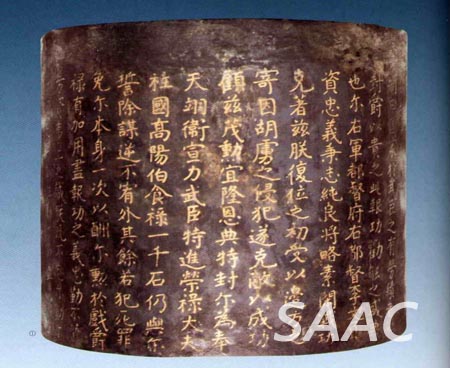 封爵以貴之此報功勸
也尔右軍都督府右都督李
資忠義秉志純良將略素閑
克著茲朕復位之初受以邊方之
寄因胡虜之侵犯遂克敵以成功
顧茲茂勳宜隆恩典特封尔為奉
天翊衛宣力武臣特進榮祿大夫
柱國高陽伯食祿一千石仍與尔
誓除謀逆不宥外其餘若犯死罪
免尔本身一次以酬尔勳於戲爵
祿有加用盡報功之義忠勤
SAAC